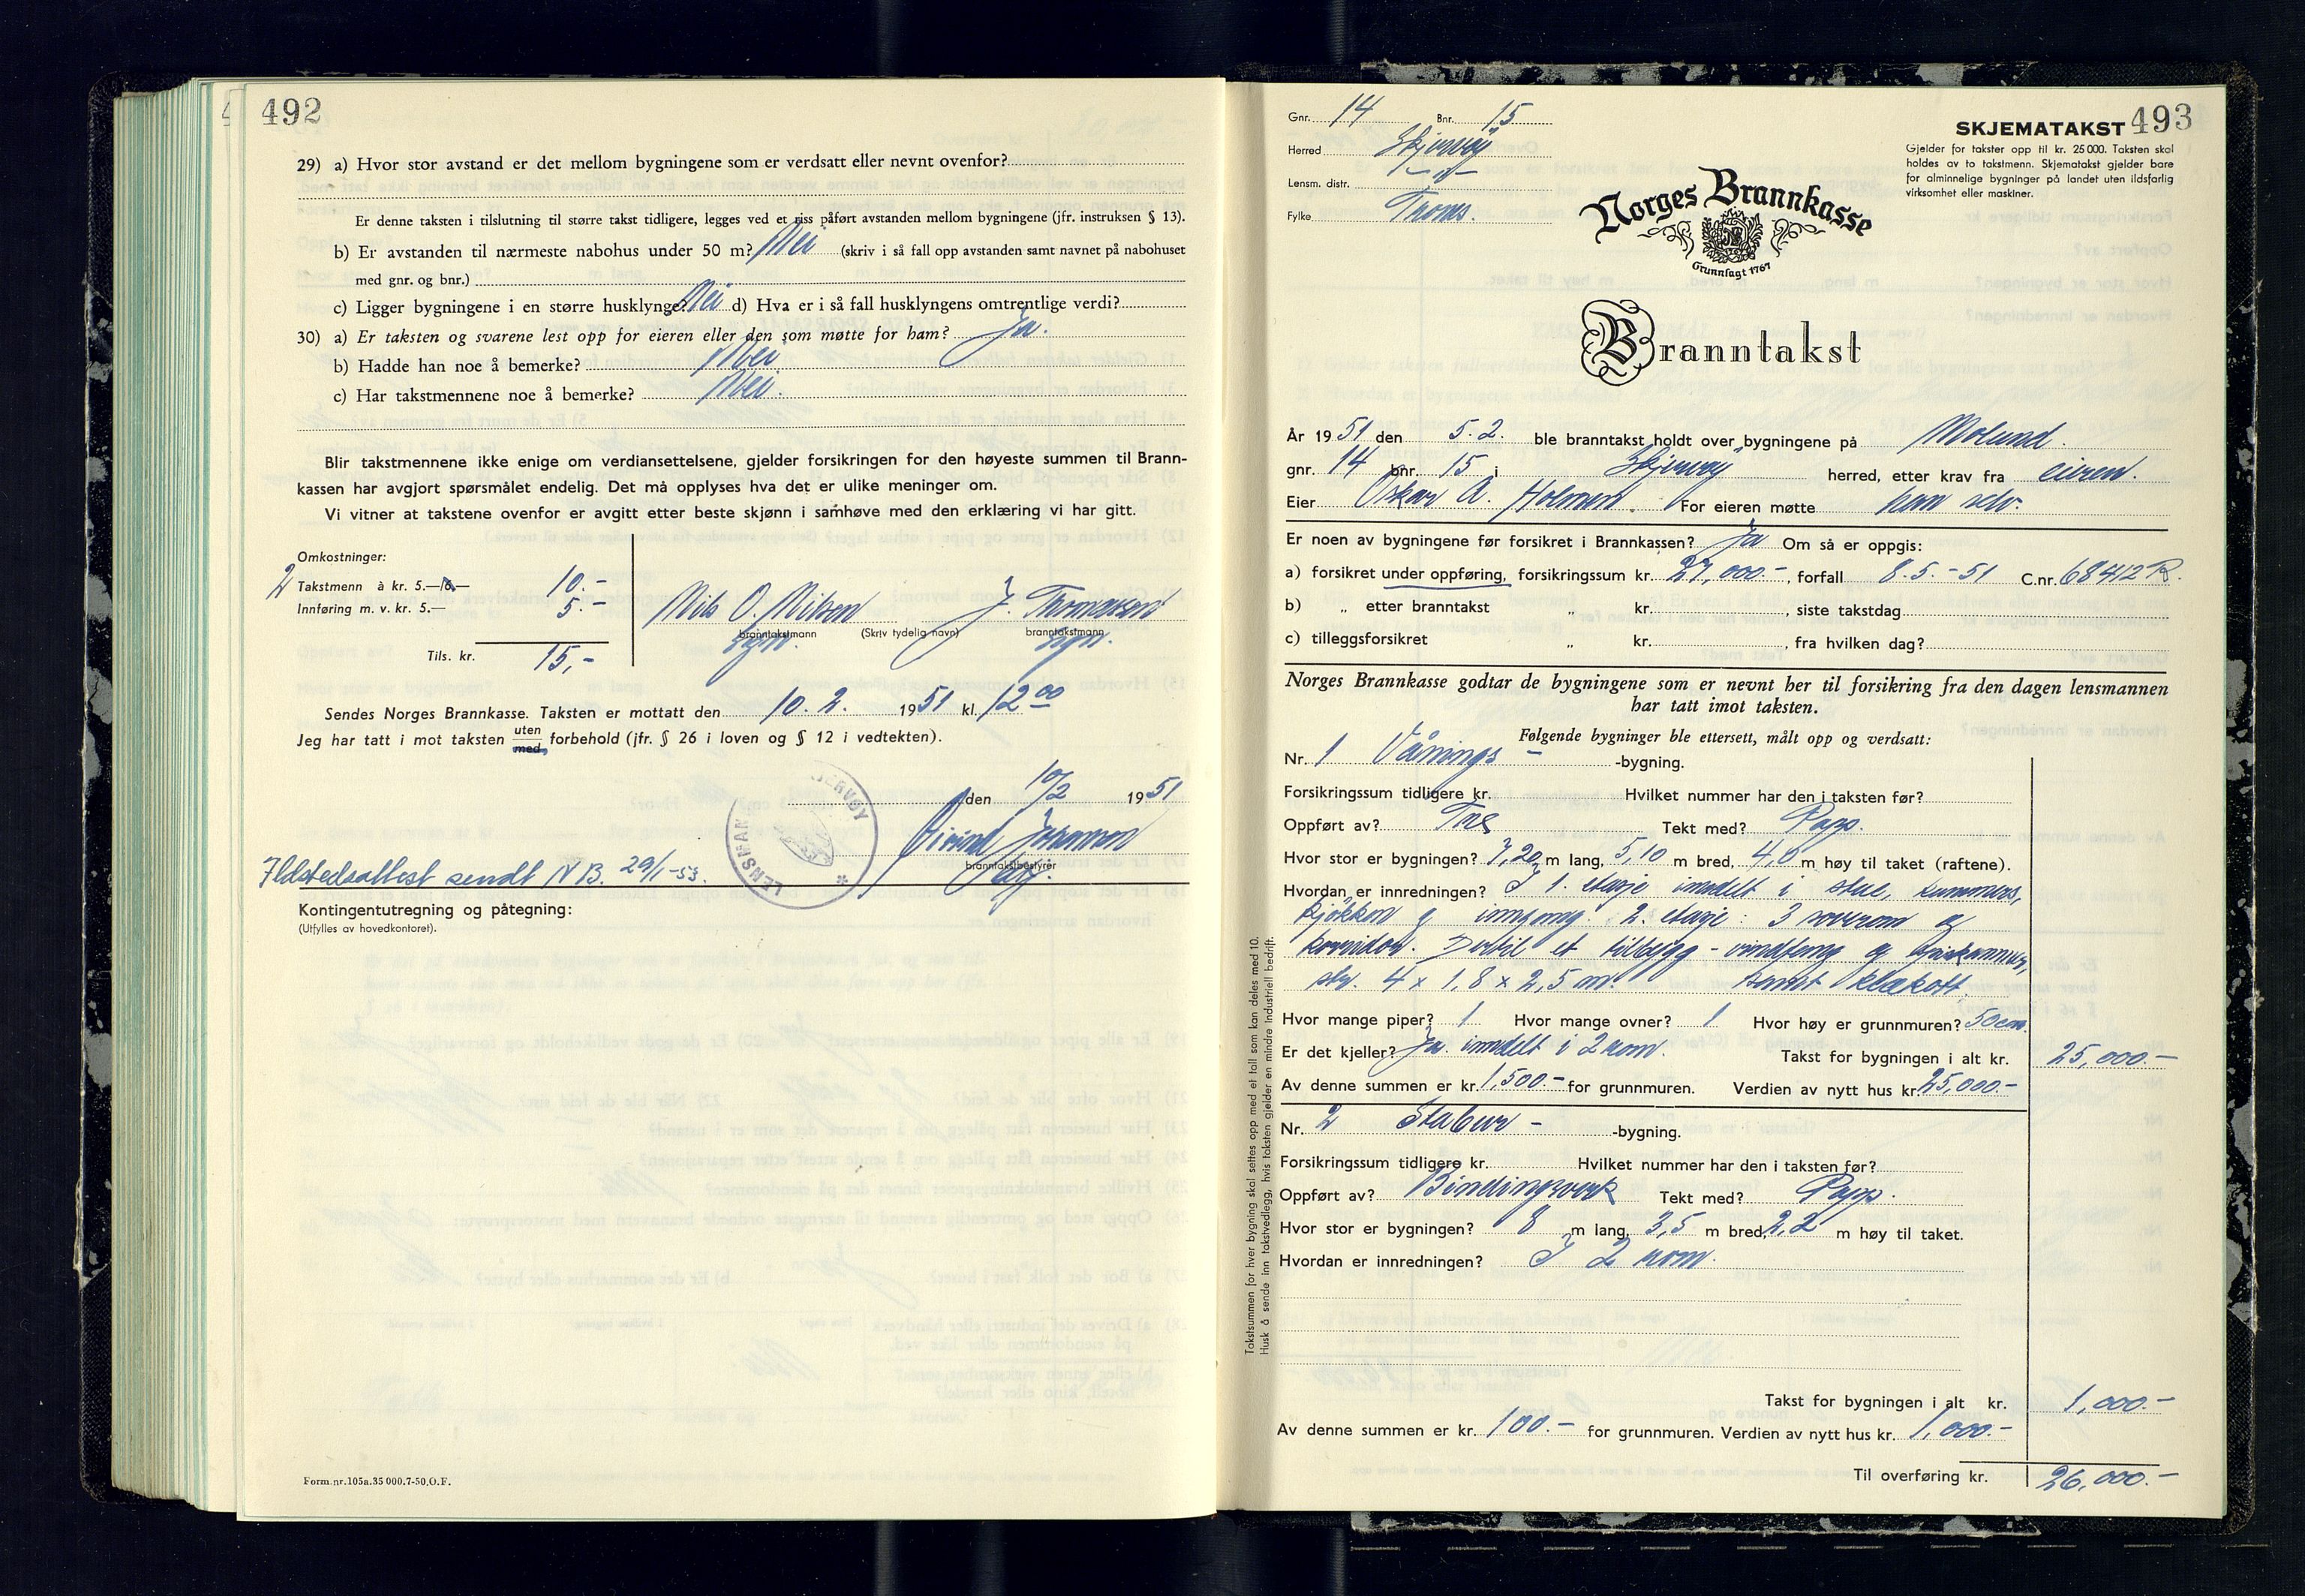 492
29) a) Hvor stor avstand er det mellom bygningene som er verdsatt eller nevnt ovenfor?
Er denne taksten i tilslutning til større takst tidligere, legges ved et riss påført avstanden mellom bygningene (jfr. instruksen § 13).
b) Er avstanden til nærmeste nabohus under 50 m? Nei (skriv i så fall opp avstanden samt navnet på nabohuset
med gnr. og bnr.)
c) Ligger bygningene i en større husklynge? Nei d) Hva er i så fall husklyngens omtrentlige verdi?
30) a) Er taksten og svarene lest opp for eieren eller den som møtte for ham? Ja.
b) Hadde han noe å bemerke? Nei
c) Har takstmennene noe å bemerke? Nei.
Blir takstmennene ikke enige om verdiansettelsene, gjelder forsikringen for den høyeste summen til Brann-
kassen har avgjort spørsmålet endelig. Det må opplyses hva det er ulike meninger om.
Vi vitner at takstene ovenfor er avgitt etter beste skjønn i samhøve med den erklæring vi har gitt.
Omkostninger:
2 Takstmenn à kr. 5.— 10.-
Innføring m. v. kr. 5.— 5.-
Tils. kr. 15,-
Nils O. Nilsen J. Thomassen
branntakstmann (Skriv tydelig navn) branntakstmann
sgn. sgn.
Sendes Norges Brannkasse. Taksten er mottatt den 10. 2. 1951 kl. 12 00
Jeg har tatt i mot taksten uten med forbehold (jfr. § 26 i loven og § 12 i vedtekten).
den 10/2 1951
Eivind Johansen
branntakstbestyrer
LENSMAN
Ildstedsattest sendt N.B. 29/1-53.
Kontingentutregning og påtegning:
(Utfylles av hovedkontoret).
Form.nr.105a.35 000.7-50.O.F.
493
Gnr. 14 Bnr. 15
Herred Skjervøy
Lensm. distr. -"-
Fylke Troms.
SKJEMATAKST
Gjelder for takster opp til kr. 25 000. Taksten skal
holdes av to takstmenn. Skjematakst gjelder bare
for alminnelige bygninger på landet uten ildsfarlig
virksomhet eller maskiner.
Norges Brannkasse
Grunnlagt 1767
Branntakst
År 1951 den 5. 2. ble branntakst holdt over bygningene på Molund.
gnr. 14 bnr. 15 i Skjervøy herred, etter krav fra eieren.
Eier Oskar A. Holmen. For eieren møtte han selv.
Er noen av bygningene før forsikret i Brannkassen? Ja Om så er oppgis:
a) forsikret under oppføring, forsikringssum kr. 27,000.-, forfall 8. 5. -51 C.nr. 68412 R.
b) „ etter branntakst „ kr. , siste takstdag
c) tilleggsforsikret „ kr. , fra hvilken dag?
Norges Brannkasse godtar de bygningene som er nevnt her til forsikring fra den dagen lensmannen
har tatt imot taksten.
Følgende bygninger ble ettersett, målt opp og verdsatt:
Nr. 1 Vånings - -bygning.
Forsikringssum tidligere kr. Hvilket nummer har den i taksten før?
Oppført av? Tre Tekt med? Papp.
Hvor stor er bygningen? 7,20 m lang, 5,10 m bred, 4,0 m høy til taket (raftene).
Hvordan er innredningen? I 1. etasje inndelt i stue, kammers,
kjøkken og inngang. 2. etasje: 3 soverom og
korridor. Dertil et tilbygg - vindfang og spiskammer,
stør. 4 x 1,8 x 2,5 m. samt kleskott.
Hvor mange piper? 1 Hvor mange ovner? 1 Hvor høy er grunnmuren? 50 cm.
Er det kjeller? Ja. inndelt i 2 rom. Takst for bygningen i alt kr. 25,000.-
Av denne summen er kr. 1,500.- for grunnmuren. Verdien av nytt hus kr. 25,000.-
Nr. 2 Stabur - -bygning.
Forsikringssum tidligere kr. Hvilket nummer har den i taksten før?
Oppført av? Bindingsverk Tekt med? Papp.
Hvor stor er bygningen? 8 m lang, 3,5 m bred, 2,2 m høy til taket.
Hvordan er innredningen? I 2 rom.
Takst for bygningen i alt kr. 1,000.-
Av denne summen er kr. 100.- for grunnmuren. Verdien av nytt hus kr. 1,000.-
Til overføring kr. 26,000.-
Takstsummen for hver bygning skal settes opp med et tall som kan deles med 10.
Husk å sende inn takstvedlegg, hvis taksten gjelder en mindre industriell bedrift.